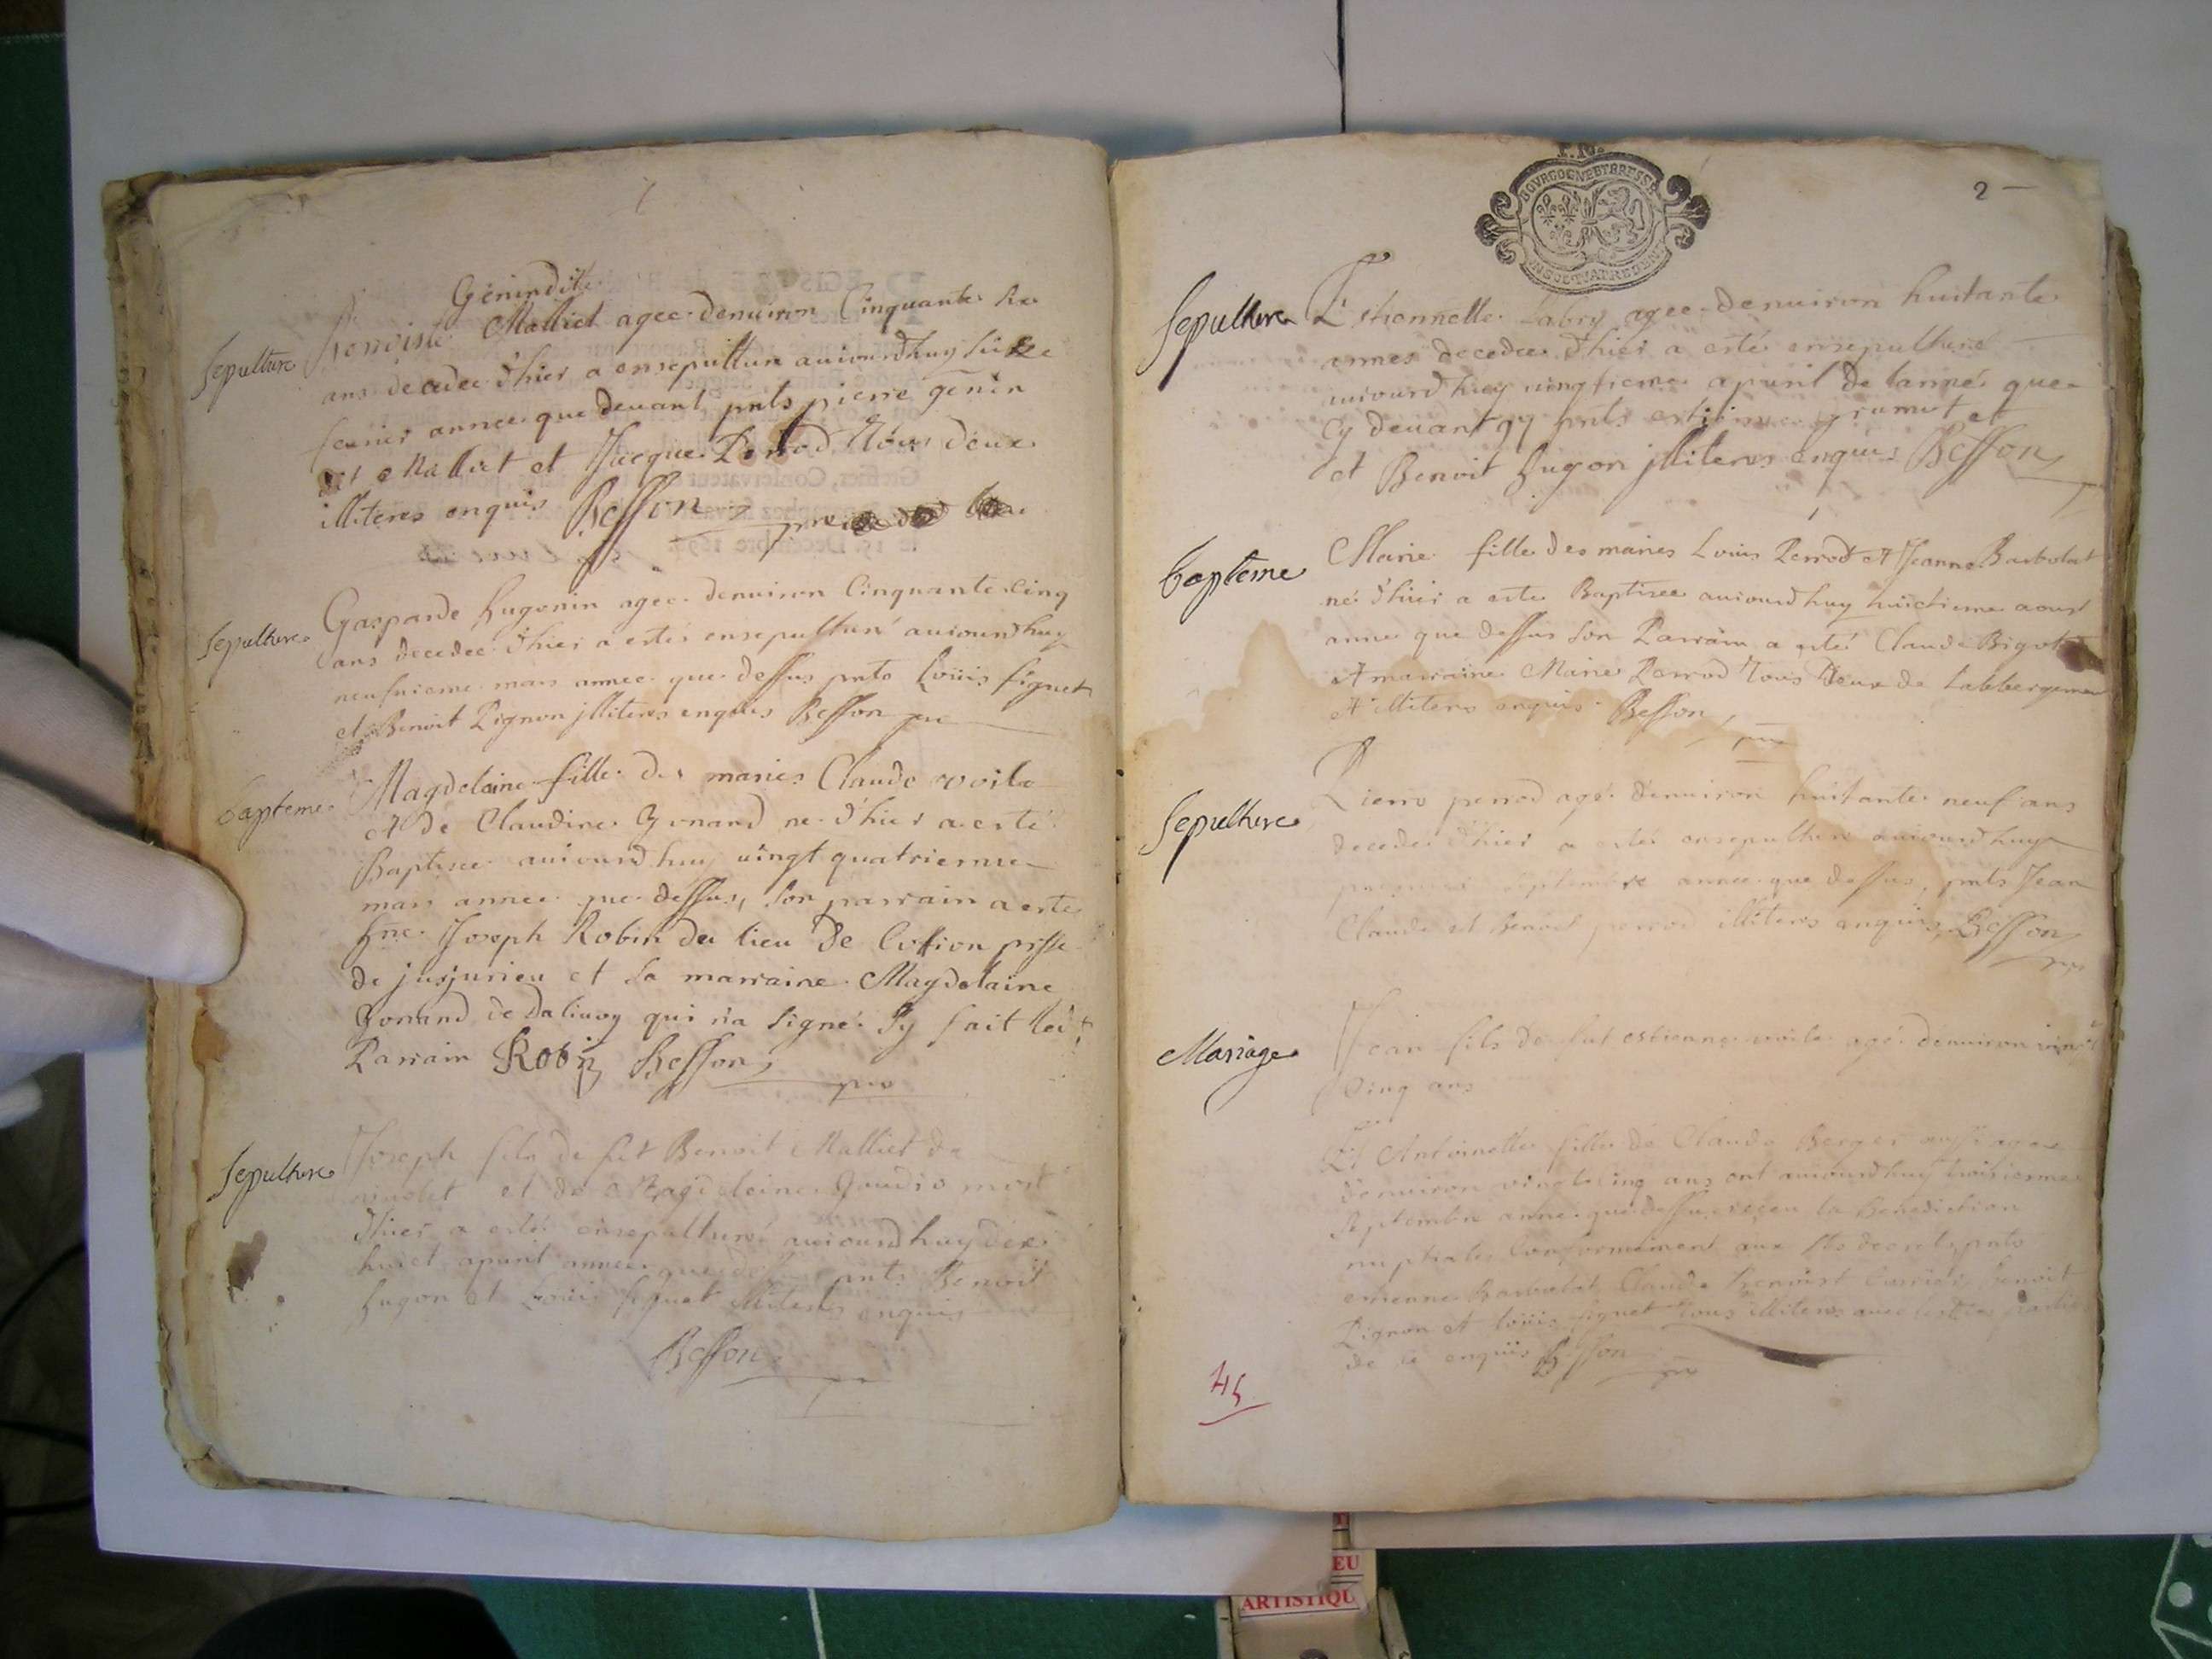 Genin dit
Sepulture
Benoiste Malliet agee denuiron Cinquante six
ans decedee d'hier a ensepulturé auiourdhuy
feurier annee que deuant pnts pierre genin
dit Malliet et Jacque Perrod Tous deux
illiteres enquis Besson
Sepulture
Gasparde hugonin agee denuiron Cinquante cinq
ans decedee d'hier a estés ensepulturé auiourdhuy
neufuieme mars annee que dessus pnts Louis figuet
et Benoit Pignon jlliteres enquis Besson
bapteme
Magdelaine fille des maries Claude voile
et de Claudine Gonand ne d'hier a esté
Baptisee auiourdhuy vingt quatrieme
mars annee que dessus, son parrain a esté
hne Joseph Robin du lieu de prsse
de jusjurieu et sa marraine Magdelaine
Gonand de qui n'a signé Sy fait led
Parrain Robin Besson
Sepulture
Joseph fils de fut Benoit Malliet de
et de Magdeleine mort
d'hier a estés ensepulturé auiourdhuy dix
huict apuril annee que dessus pnts Benoit
hugon et Louis figuet illiteres enquis
Besson
2
BOVRGOGNE ET BRESSE
Sepulture
Estiennette Labry agee denuiron huitante
annes decedee d'hier a esté ensepulturé
auiourdhuy vingtieme apuril de lannée que
Cy deuant pnts estienne grumet et
et Benoit hugon jlliteres enquis Besson
bapteme
Marie fille des maries Louis Perrod et Jeanne Barbolat
né d'hier a este Baptisee auiourdhuy huictieme aoust
anne que dessus son Parrain a esté Claude Bigot
et marraine Marie Perrod tous deux de Labbergement
et illiteres enquis Besson
Sepulture
Pierre perrod agé denuiron huitante neuf ans
decedé d'hier a estés ensepulturé auiourdhuy
septembre annee que dessus, pnts Jean
Claude et Benoit perrod illiteres enquis, Besson
Mariage
Jean fils de fut estienne voile agé denuiron vingt
cinq ans
Et Antoinette fille de Claude Berger aussi agee
denuiron vingt cinq ans ont auiourdhuy troisieme
septembre anne que dessus reçeu la Benediction
nuptiale Conformement aux Sts decrets pnts
estienne Barbolat Claude Benoist Benoit
Pignon et Louis figuet tous illiteres auec
de ce enquis Besson
45
EU
ARTISTIQU